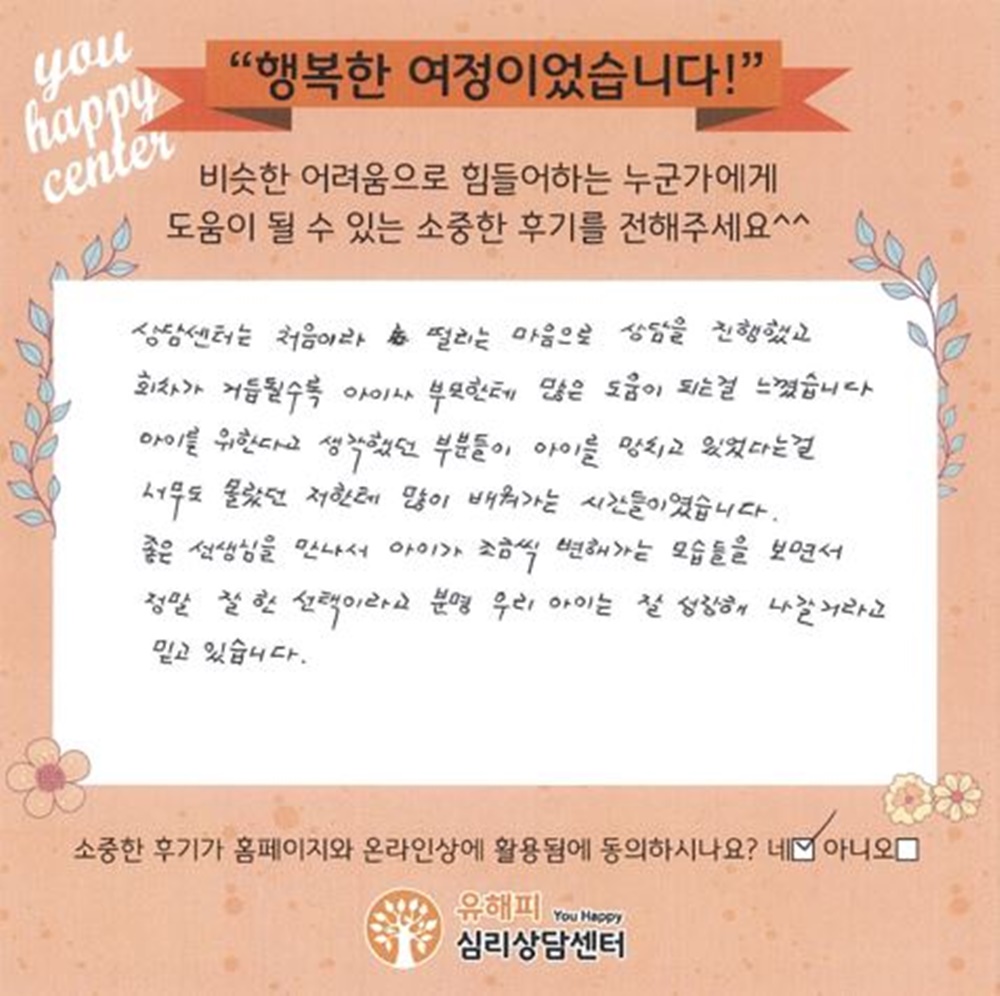 you
happy
center
“행복한 여정이었습니다!”
비슷한 어려움으로 힘들어하는 누군가에게
도움이 될 수 있는 소중한 후기를 전해주세요^^
상담센터는 처음이라 떨리는 마음으로 상담을 진행했고
회차가 거듭될수록 아이나 부모한테 많은 도움이 되는걸 느꼈습니다
아이를 위한다고 생각했던 부분들이 아이를 망치고 있었다는걸
너무도 몰랐던 저한테 많이 배워가는 시간들이였습니다.
좋은 선생님을 만나서 아이가 조금씩 변해가는 모습들을 보면서
정말 잘 한 선택이라고 분명 우리 아이는 잘 성장해 나갈거라고
믿고 있습니다.
소중한 후기가 홈페이지와 온라인상에 활용됨에 동의하시나요? 네☑ 아니오☐
유해피 You Happy
심리상담센터